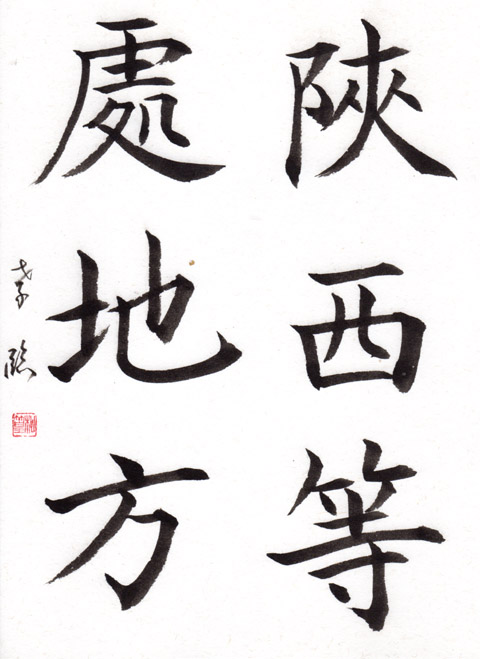 陝西等
處地方
臨